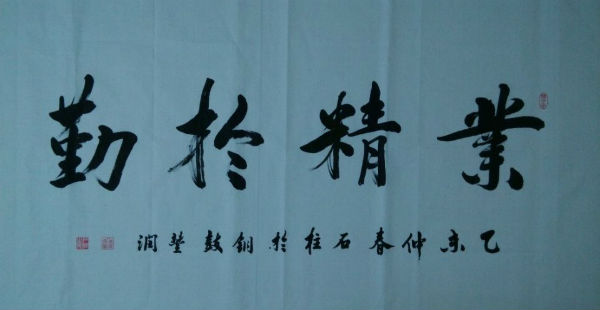 業精於勤
乙未仲春石柱於銅鼓堑润